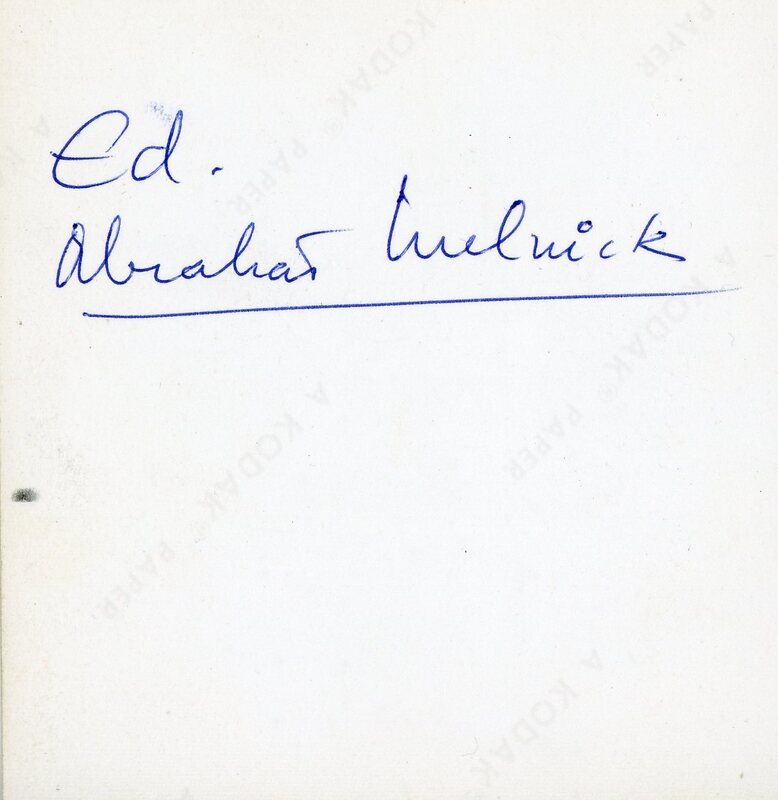 Ed.
Abraham Melnick
A KODAK® PAPER
A KODAK® PAPER
A KODAK® PAPER
A KODAK
PAPER
A K